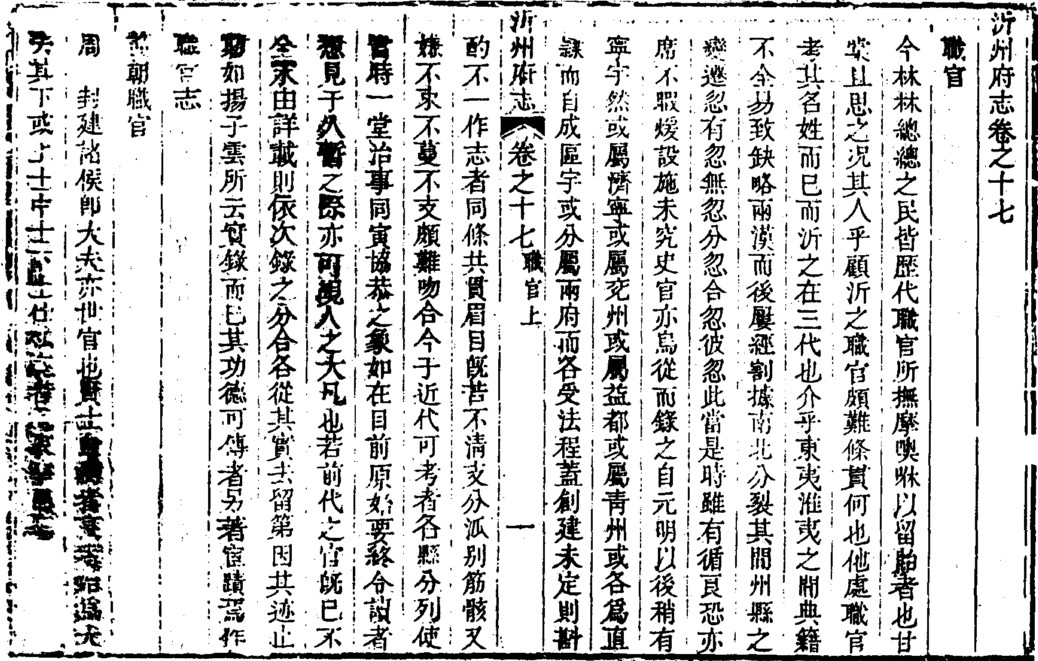 沂州府志卷之十七
職官
今林林總總之民皆歷代職官所撫摩噢咻以留貽者也甘
棠且思之況其人乎顧沂之職官頗難條貫何也他處職官
考其名姓而已而沂之在三代也介乎東夷淮夷之間典籍
不全易致缺略兩漢而後屢經割據南北分裂其間州縣之
變遷忽有忽無忽分忽合忽彼忽此當是時雖有循良恐亦
席不暇煖設施未究史官亦烏從而錄之自元明以後稍有
寧宇然或屬濟寧或屬兗州或屬益都或屬青州或各爲直
隸而自成區宇或分屬兩府而各受法程蓋創建未定則斟
沂州府志 卷之十七 職官上 一
酌不一作志者同條共貫眉目旣苦不清支分派别筋骸又
嫌不束不蔓不支頗難吻合今于近代可考者各縣分列使
當時一堂治事同寅協恭之象如在目前原始要終令讀者
想見于久暫之際亦可視人之大凡也若前代之官旣已不
全末由詳載則依次錄之分合各從其實去留第因其迹止
期如揚子雲所云實錄而已其功德可傳者另著宦蹟焉作
職官志
前朝職官
周 封建諸侯卽大夫亦世官也
失其下或